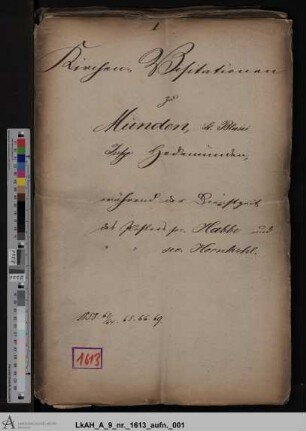 1
Kirchen-Visitationen
zu
Münden, St. Blasii
Hedemünden,
während der Dienstzeit
des Pastors pr. Habbe und
" " sec. Hornkohl.
65. 66. 69.
1613
LkAH_A_9_nr._1613_aufn._001